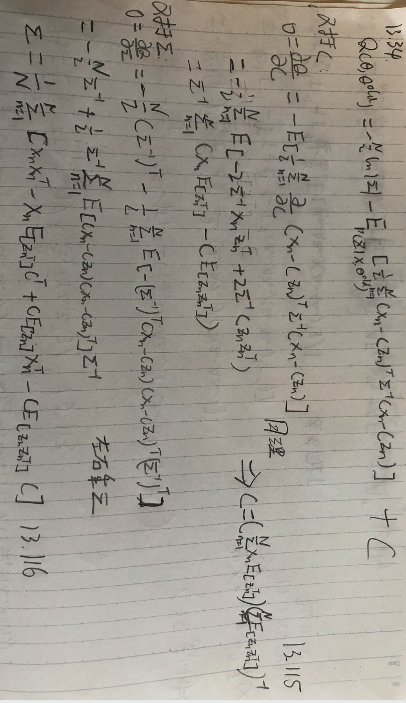 13.34
Q(θ,θ^old) = -N/2 ln|Σ| - E_{p(Z|X,θ^old)}[1/2 Σ_{n=1}^N (xn-Czn)^T Σ^-1 (xn-Czn)] + C
对于C:
0 = ∂Q/∂C = -E[1/2 Σ_{n=1}^N ∂/∂C (xn-Czn)^T Σ^-1 (xn-Czn)]
= -1/2 Σ_{n=1}^N E[-2Σ^-1 xn zn^T + 2Σ^-1 C zn zn^T]
= Σ^-1 Σ_{n=1}^N (xn E[zn^T] - C E[zn zn^T])
⇒ C = (Σ_{n=1}^N xn E[zn^T]) (Σ_{n=1}^N E[zn zn^T])^-1 13.115
对于Σ
0 = ∂Q/∂Σ = -N/2 (Σ^-1)^T - 1/2 Σ_{n=1}^N E[-(Σ^-1)^T (xn-Czn)(xn-Czn)^T (Σ^-1)^T]
= -N/2 Σ^-1 + 1/2 Σ^-1 Σ_{n=1}^N E[(xn-Czn)(xn-Czn)^T] Σ^-1 左右乘Σ
Σ = 1/N Σ_{n=1}^N [xn xn^T - xn E[zn^T] C^T + C E[zn] xn^T - C E[zn zn^T] C] 13.116